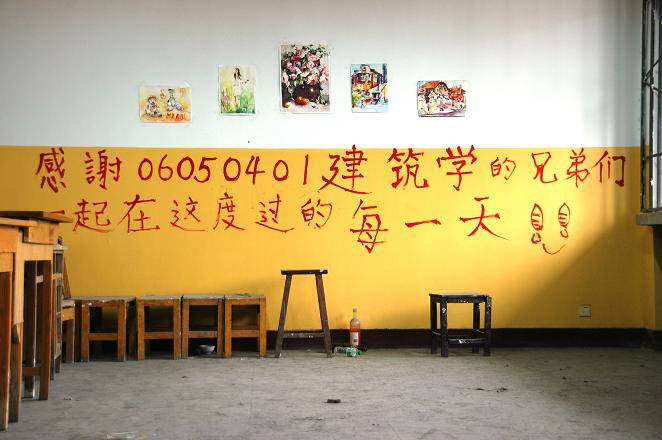 感謝06050401建筑学的兄弟们
一起在这度过的每一天!!